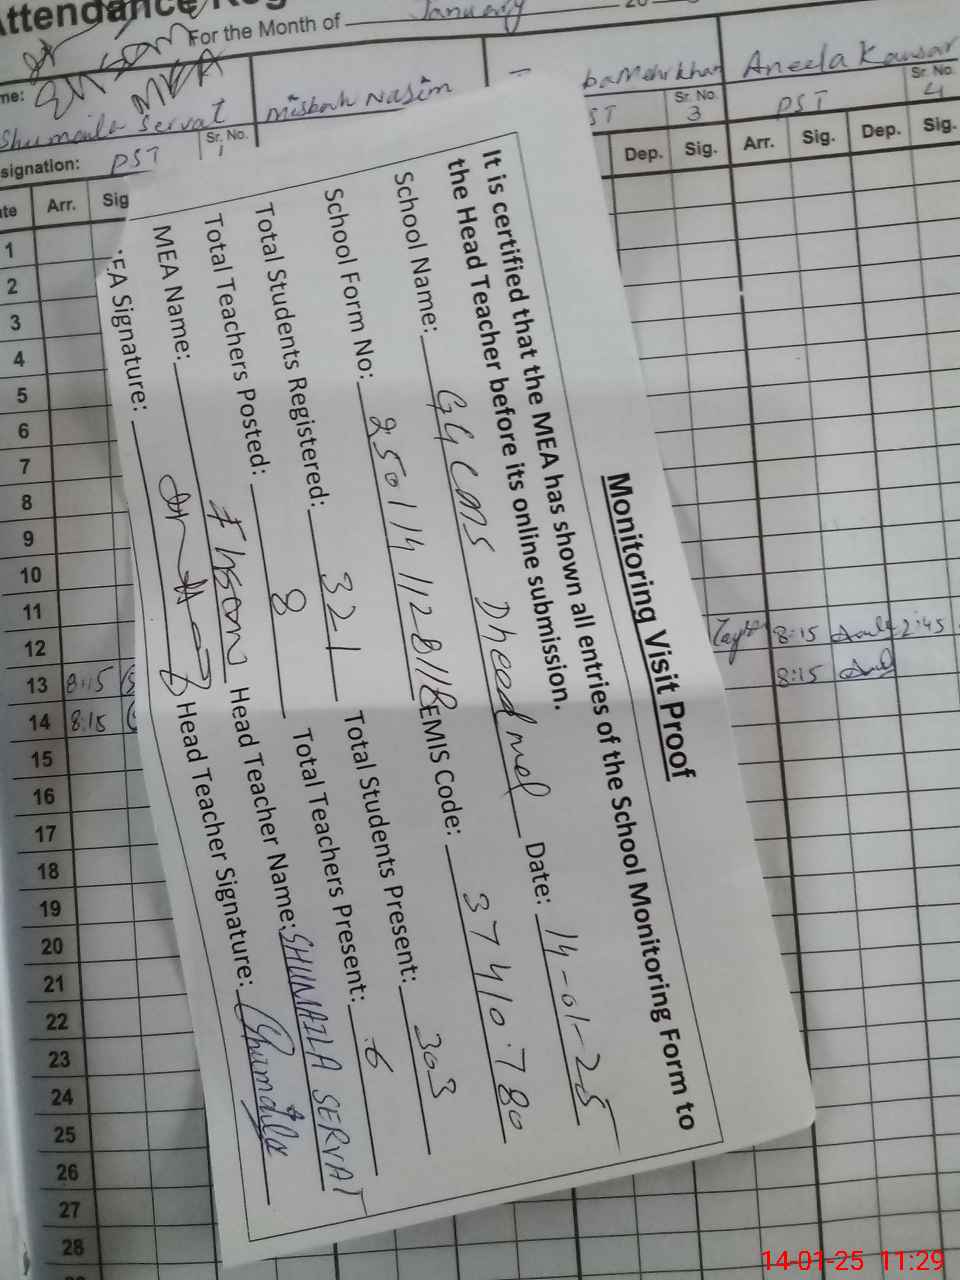 Attendance Reg
For the Month of January 20
MEA
me: Shumaila Servat
Misbah Nasim
Mehr khan
Aneela Kausar
Sr. No. 1
Sr. No. 3
Sr. No. 4
signation: PST
ST
PST
te Arr. Sig
Dep. Sig. Arr. Sig. Dep. Sig.
1
2
3
4
5
6
7
8
9
10
11
12 8:15 2:45
13 8:15 8:15
14 8:15
15
16
17
18
19
20
21
22
23
24
25
26
27
28
Monitoring Visit Proof
It is certified that the MEA has shown all entries of the School Monitoring Form to
the Head Teacher before its online submission.
School Name: Date: 14-01-25
School Form No: EMIS Code: 37410780
Total Students Registered: 321 Total Students Present: 303
Total Teachers Posted: 8 Total Teachers Present: 6
MEA Name: Head Teacher Name: SHUMAILA SERVAT
EA Signature: Head Teacher Signature: Shumaila
14-01-25 11:29